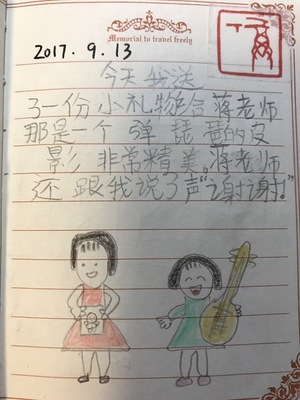 Memorial to travel freely
2017.9.13
今天我送
了一份小礼物给蒋老师
那是一个弹琵琶的皮
影非常精美,蒋老师
还跟我说了声“谢谢!”